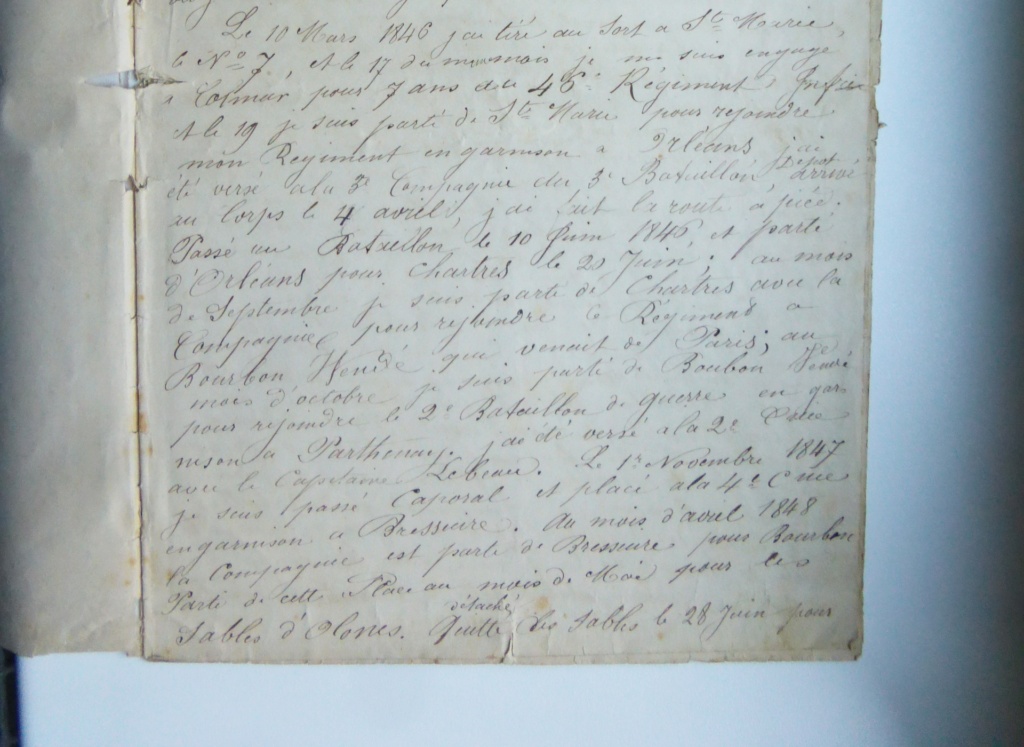 Le 10 Mars 1846 j'ai tiré au Sort a Ste Marie,
le No 7, et le 17 du même mois je me suis engagé
a Colmar pour 7 ans au 46e Régiment
et le 19 je suis parti de Ste Marie pour rejoindre
mon Regiment en garnison a Orléans j'ai
été versé a la 3e Compagnie du 3e Bataillon, Dépot arrivé
au Corps le 4 avril, j'ai fait la route à pied.
Passé au Bataillon le 10 Juin 1846, et parti
d'Orléans pour Chartres le 20 Juin; au mois
de Septembre je suis parti de Chartres avec la
Compagnie pour rejoindre le Régiment a
Bourbon Vendé qui venait de Paris; au
mois d'octobre je suis parti de Boubon Vendé
pour rejoindre le 2e Bataillon de guerre en gar
nison a Parthenay. j'ai été versé a la 2e Cnie
avec le Capitaine Lebeau. Le 1r Novembre 1847
je suis passé Caporal et placé a la 4e Cnie
en garnison a Bressuire. Au mois d'avril 1848
la Compagnie est partie de Bressuire pour Bourbon
Parti de cette Place au mois de Mai pour les
Sables d'Olones. Quitté détaché les Sables le 28 Juin pour